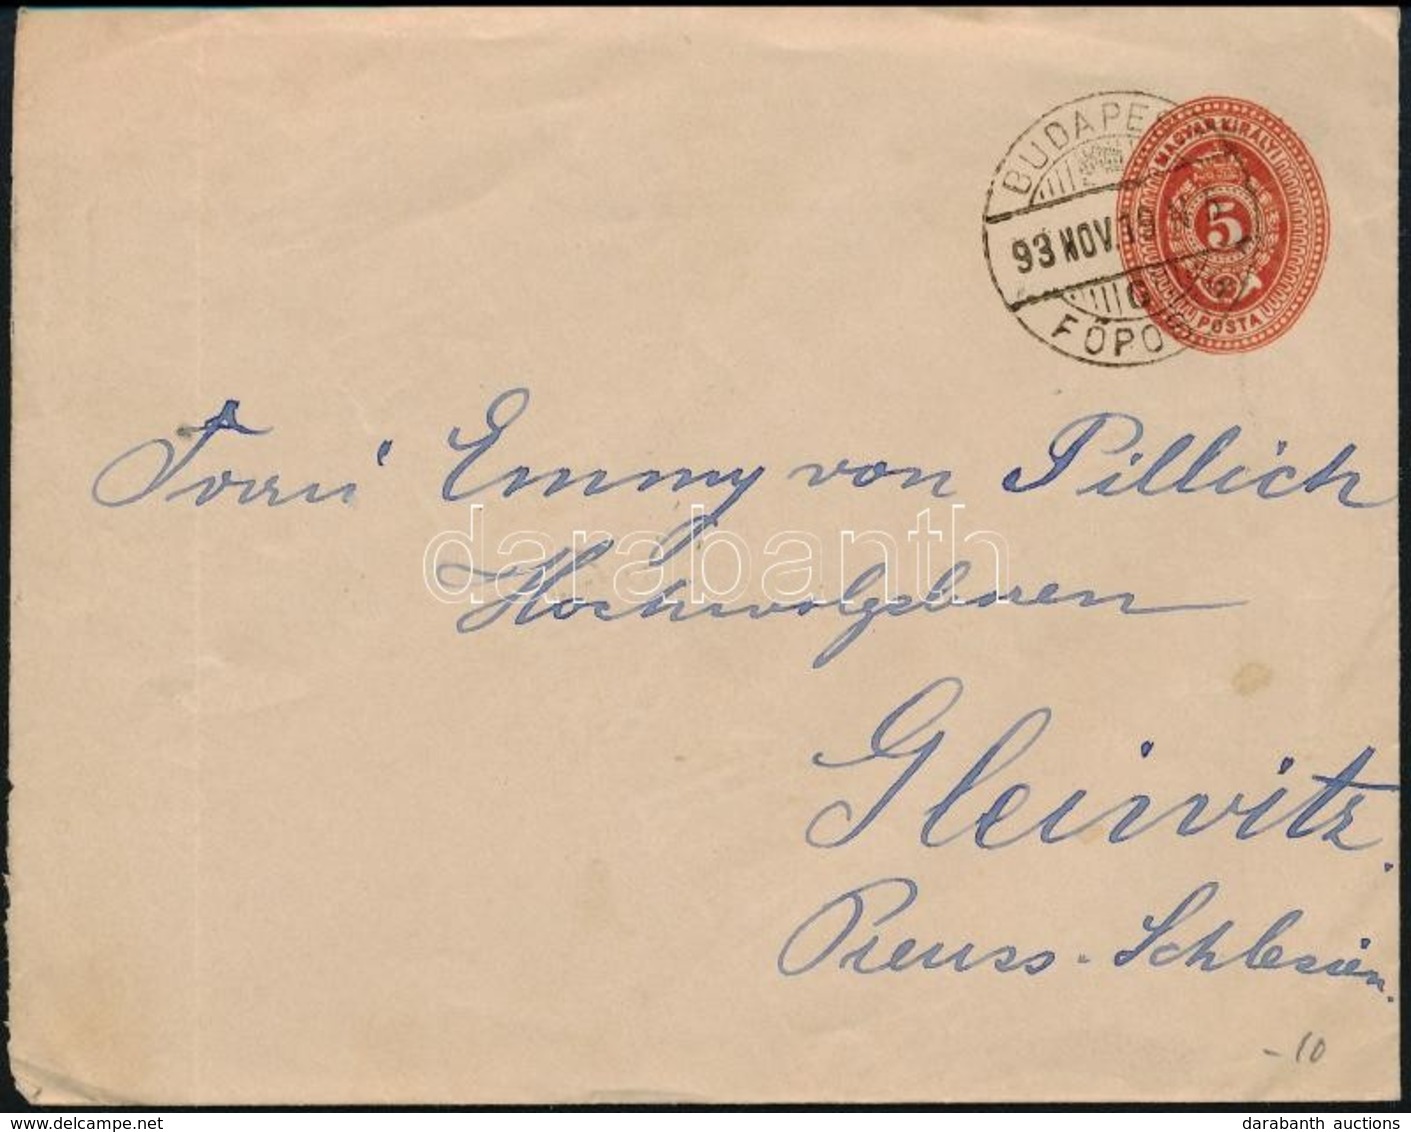 BUDAPES
93 NOV.
FŐPO
MAGYAR KIRÁLYI
5
POSTA
Frau Emmy von Pillich
Hochwolgeboren
Gleiwitz.
Preuss-Schlesien.
-10
darabanth
darabanth auctions